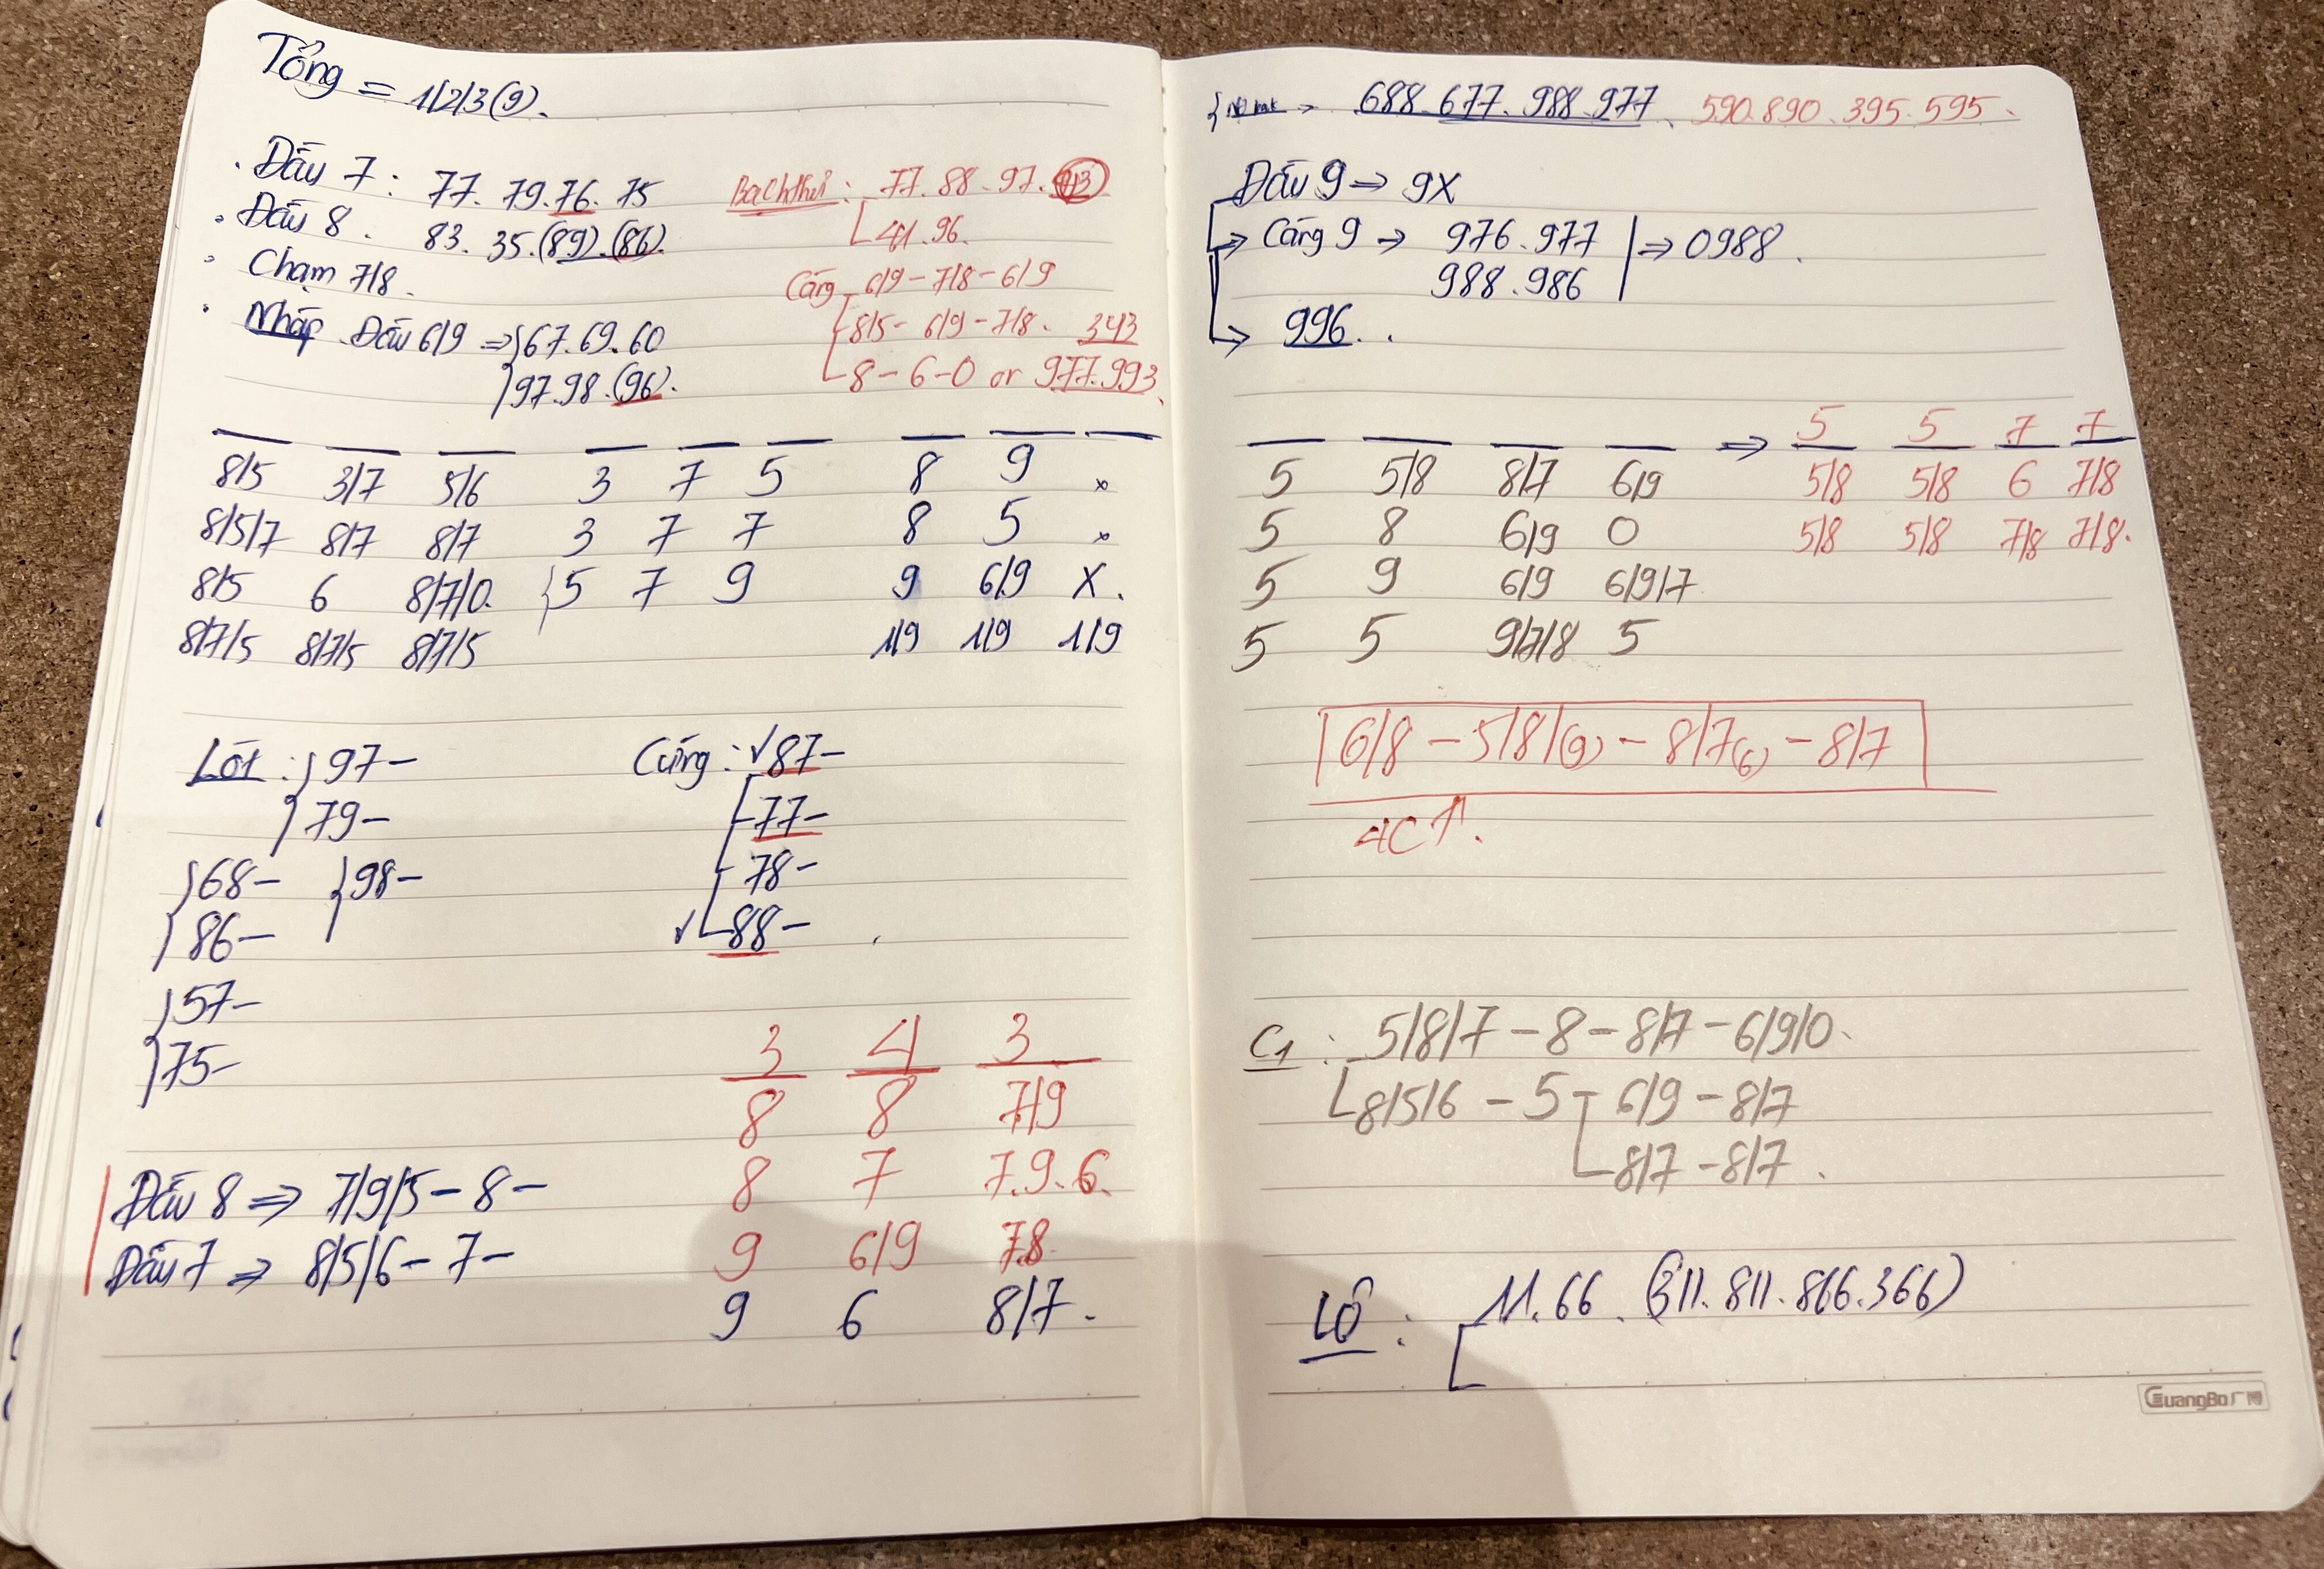 Tổng = 1/2/3(9).
. Đầu 7 : 77. 79. 76. 75
. Đầu 8 . 83. 35. (89). (86).
. Chạm 7/8.
. Nháp Đầu 6/9 => 67. 69. 60
97. 98. (96).
Bạch thủ : 77. 88. 97. 43
41. 96.
Càng 6/9 - 7/8 - 6/9
8/5 - 6/9 - 7/8. 343
8 - 6 - 0 or 977. 993.
8/5 3/7 5/6 3 7 5 8 9 x
8/5/7 8/7 8/7 3 7 7 8 5 x
8/5 6 8/7/0. 5 7 9 9 6/9 X.
8/7/5 8/7/5 8/7/5 1/9 1/9 1/9
Lót : 97-
79-
68- 98-
86-
57-
75-
Cứng : √ 87-
77-
78-
√ 88-
3 4 3
8 8 7/9
8 7 7. 9. 6.
9 6/9 7.8
9 6 8/7.
Đầu 8 => 7/9/5 - 8 -
Đầu 7 => 8/5/6 - 7 -
688. 677. 988. 977. 590. 890. 395. 595.
Đầu 9 => 9X
Càng 9 => 976. 977 => 0988.
988. 986
996. .
=> 5 5 7 7
5 5/8 8/7 6/9 5/8 5/8 6 7/8
5 8 6/9 0 5/8 5/8 7/8 7/8.
5 9 6/9 6/9/7
5 5 9/7/8 5
6/8 - 5/8/(9) - 8/7(6) - 8/7
4C ↑.
C1 : 5/8/7 - 8 - 8/7 - 6/9/0.
8/5/6 - 5 - 6/9 - 8/7
8/7 - 8/7.
Lô : 11. 66. (311. 811. 866. 366)
GuangBo广博